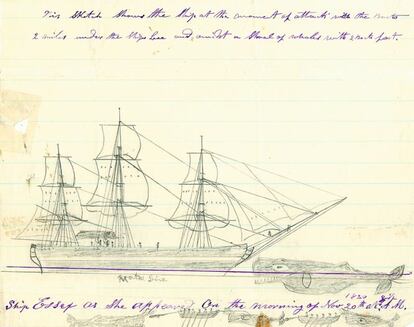 Tis Sketch Shows the Ship at the moment of attack with the Boats
2 miles under the Ships Lee and amidst a Shoal of whales with 2 Boats fast.
Water Line
1820
Ship Essex as She appeared On the morning of Nov 20th at A.M.